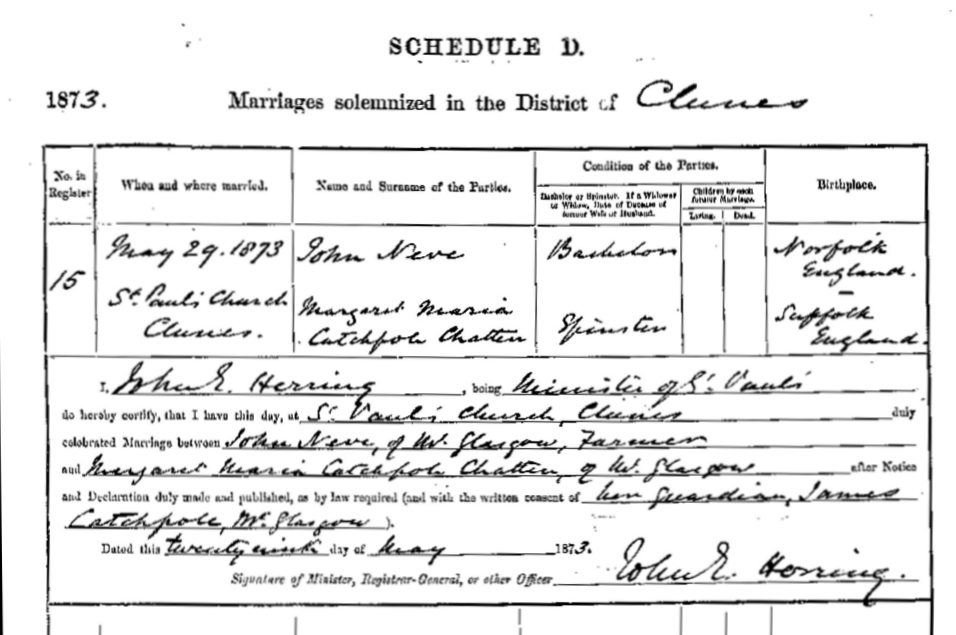 SCHEDULE D.
1873. Marriages solemnized in the District of Clunes
No. in Register
When and where married.
Name and Surname of the Parties.
Condition of the Parties.
Bachelor or Spinster. If a Widower or Widow, Date of Decease of former Wife or Husband.
Children by each former Marriage.
Living. Dead.
Birthplace.
15
May 29. 1873
St. Paul's Church
Clunes.
John Neve
Margaret Maria
Catchpole Chatten
Bachelor
Spinster
Norfolk
England.
Suffolk
England.
I, John E. Herring, being Minister of St. Paul's
do hereby certify, that I have this day, at St. Paul's Church, Clunes duly
celebrated Marriage between John Neve, of Mt. Glasgow, Farmer
and Margaret Maria Catchpole Chatten, of Mt. Glasgow after Notice
and Declaration duly made and published, as by law required (and with the written consent of her guardian, James
Catchpole, Mt. Glasgow ).
Dated this twenty ninth day of May 1873.
Signature of Minister, Registrar-General, or other Officer John E. Herring.